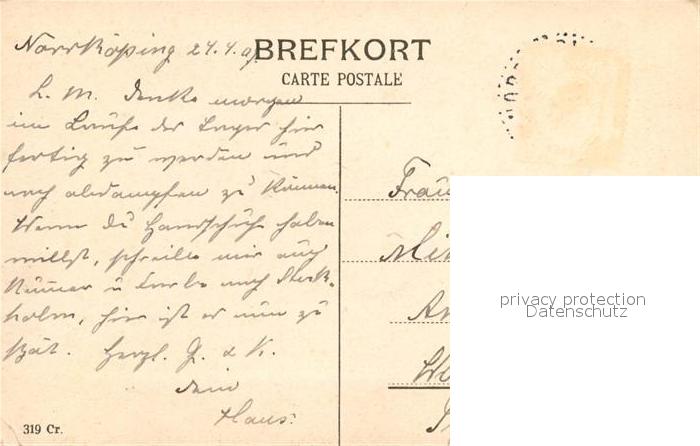 Norrköping 24.4.
BREFKORT
CARTE POSTALE
L. M. Denke morgen
im Laufe des Tages hier
fertig zu werden und
nach abdampfen zu können.
Wenn du Handschuhe haben
willst, schreibe mir auch
Nummer u Farbe nach Stock-
holm, hier ist es nun zu
spät. Herzl. G. & K.
Dein
Hans.
Frau
319 Cr.
privacy protection
Datenschutz